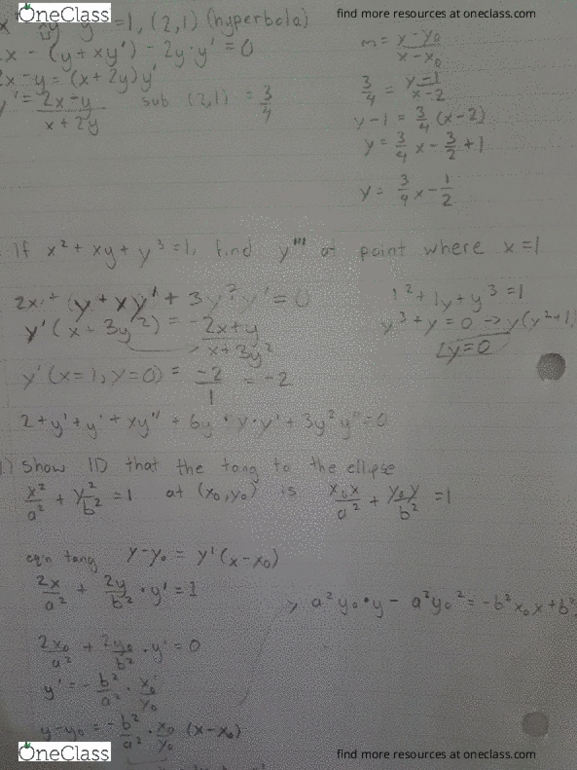 OneClass
find more resources at oneclass.com
=1, (2,1) (hyperbola)
x - (y + xy') - 2y·y' = 0
2x - y = (x + 2y)y'
y' = 2x-y / x+2y sub (2,1) = 3/4
m = y-y₀ / x-x₀
3/4 = y-1 / x-2
y-1 = 3/4 (x-2)
y = 3/4 x - 3/2 + 1
y = 3/4 x - 1/2
If x² + xy + y³ = 1, find y''' at point where x = 1
2x + (y + xy' + 3y²y' = 0
y'(x + 3y²) = -2x+y / x+3y²
y'(x=1, y=0) = -2/1 = -2
2 + y' + y' + xy'' + 6y·y·y' + 3y²y'' = 0
1² + 1y + y³ = 1
y³ + y = 0 → y(y²+1)
y=0
) Show ID that the tang to the ellipse
x²/a² + y²/b² = 1 at (x₀,y₀) is x₀x/a² + y₀y/b² = 1
eq'n tang y-y₀ = y'(x-x₀)
2x/a² + 2y/b² · y' = 1
2x₀/a² + 2y₀/b² · y' = 0
y' = -b²/a² · x₀/y₀
y-y₀ = -b²/a² · x₀/y₀ (x-x₀)
a²y₀·y - a²y₀² = -b²x₀x + b²
OneClass
find more resources at oneclass.com